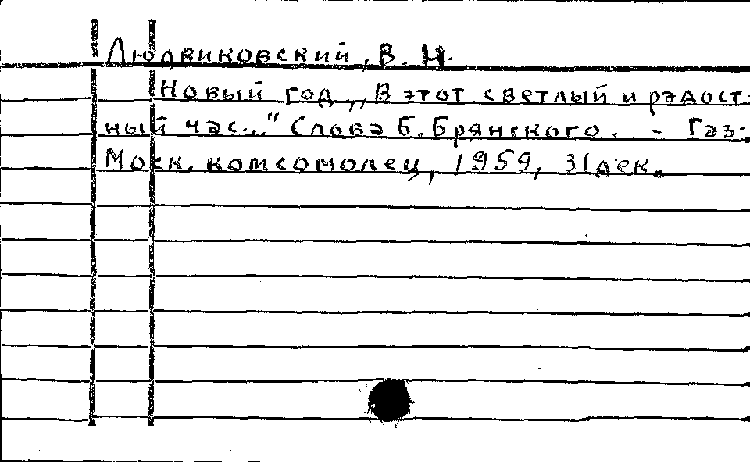 Людвиковский, В. Н.
Новый год „В этот светлый и радост-
ный час..." Слова Б. Брянского. - Газ.
Моск. комсомолец, 1959, 31 дек.